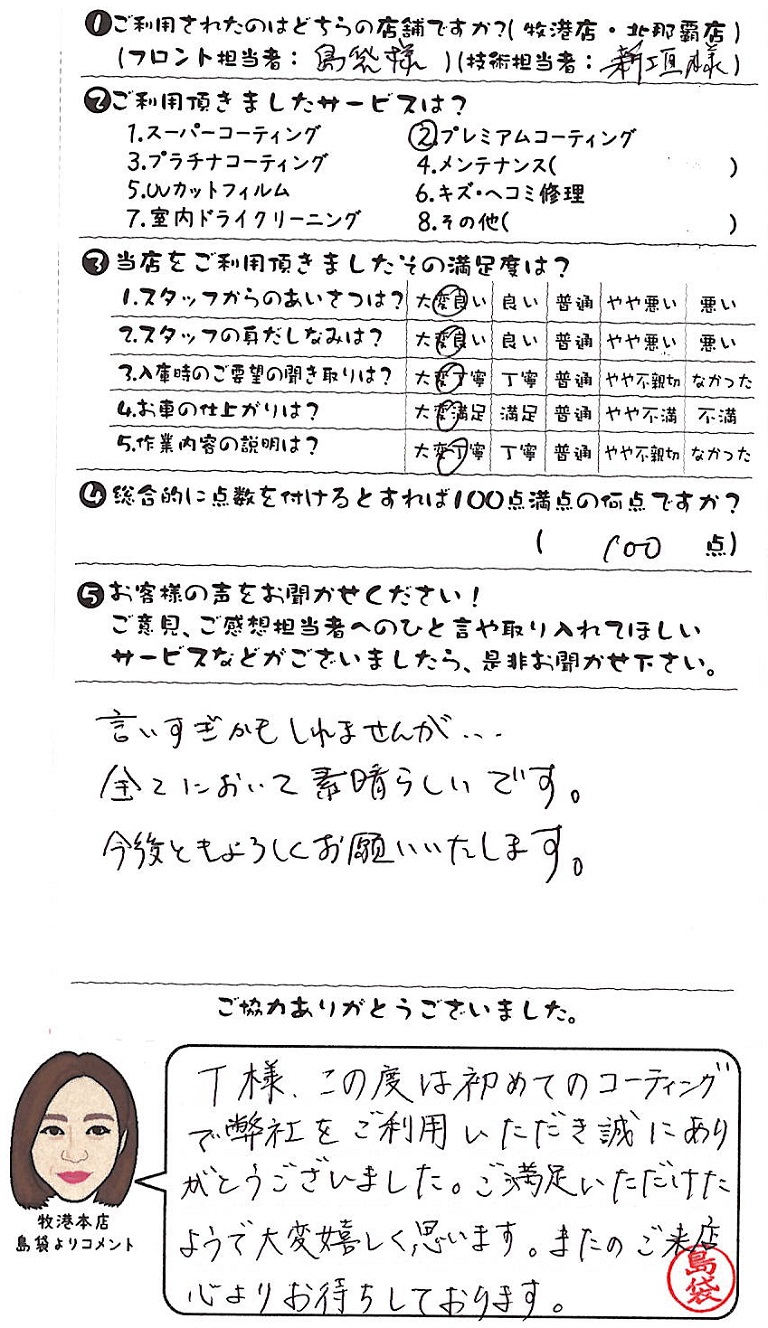 ❶ご利用されたのはどちらの店舗ですか?(牧港店・北那覇店)
(フロント担当者:島袋様)(技術担当者:新垣様)
❷ご利用頂きましたサービスは?
1.スーパーコーティング ②.プレミアムコーティング
3.プラチナコーティング 4.メンテナンス( )
5.UVカットフィルム 6.キズ・ヘコミ修理
7.室内ドライクリーニング 8.その他( )
❸当店をご利用頂きましたその満足度は?
1.スタッフからのあいさつは? 大変良い 良い 普通 やや悪い 悪い
2.スタッフの身だしなみは? 大変良い 良い 普通 やや悪い 悪い
3.入庫時のご要望の聞き取りは? 大変丁寧 丁寧 普通 やや不親切 なかった
4.お車の仕上がりは? 大変満足 満足 普通 やや不満 不満
5.作業内容の説明は? 大変丁寧 丁寧 普通 やや不親切 なかった
❹総合的に点数を付けるとすれば100点満点の何点ですか?
( 100 点)
❺お客様の声をお聞かせください!
ご意見、ご感想担当者へのひと言や取り入れてほしい
サービスなどがございましたら、是非お聞かせ下さい。
言いすぎかもしれませんが...
全てにおいて素晴らしいです。
今後ともよろしくお願いいたします。
ご協力ありがとうございました。
T様、この度は初めてのコーティング
で弊社をご利用いただき誠にあり
がとうございました。ご満足いただけた
ようで大変嬉しく思います。またのご来店
心よりお待ちしております。
島袋
牧港本店
島袋よりコメント